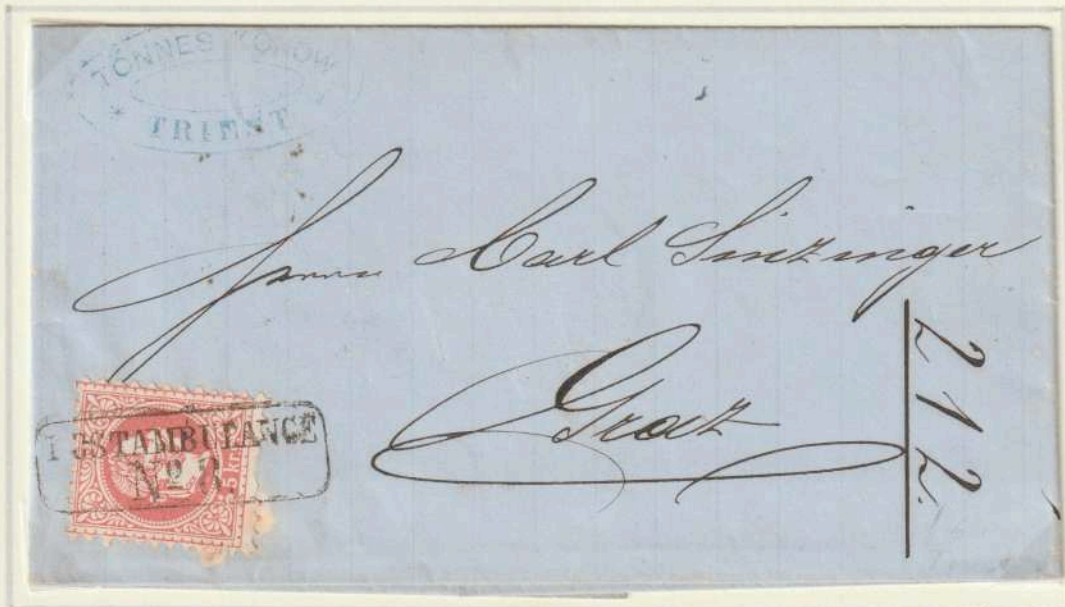 TÖNNES
TRIEST
Herrn Carl Sinzinger
Graz
212.
POSTAMBULANCE
No
5 kr